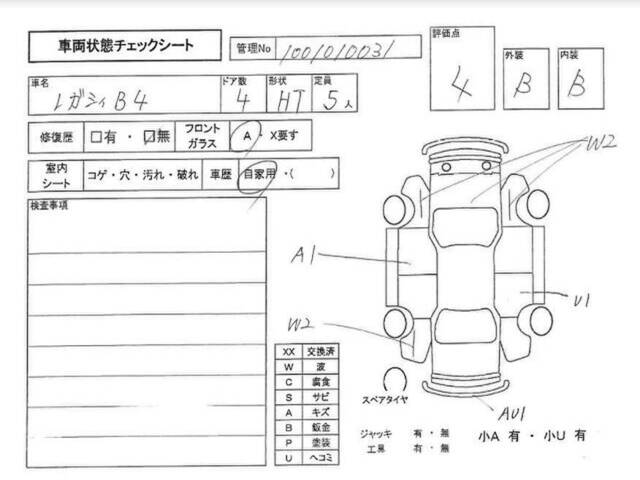 車両状態チェックシート
管理No 1001010031
評価点 4
外装 B
内装 B
車名 レガシィB4
ドア数 4
形状 HT
定員 5人
修復歴 □有・☑無
フロントガラス A・X要す
室内シート コゲ・穴・汚れ・破れ
車歴 自家用・( )
検査事項
W2
A1
U1
W2
AU1
XX 交換済
W 波
C 腐食
S サビ
A キズ
B 鈑金
P 塗装
U ヘコミ
スペアタイヤ
ジャッキ 有・無
工具 有・無
小A 有・小U 有